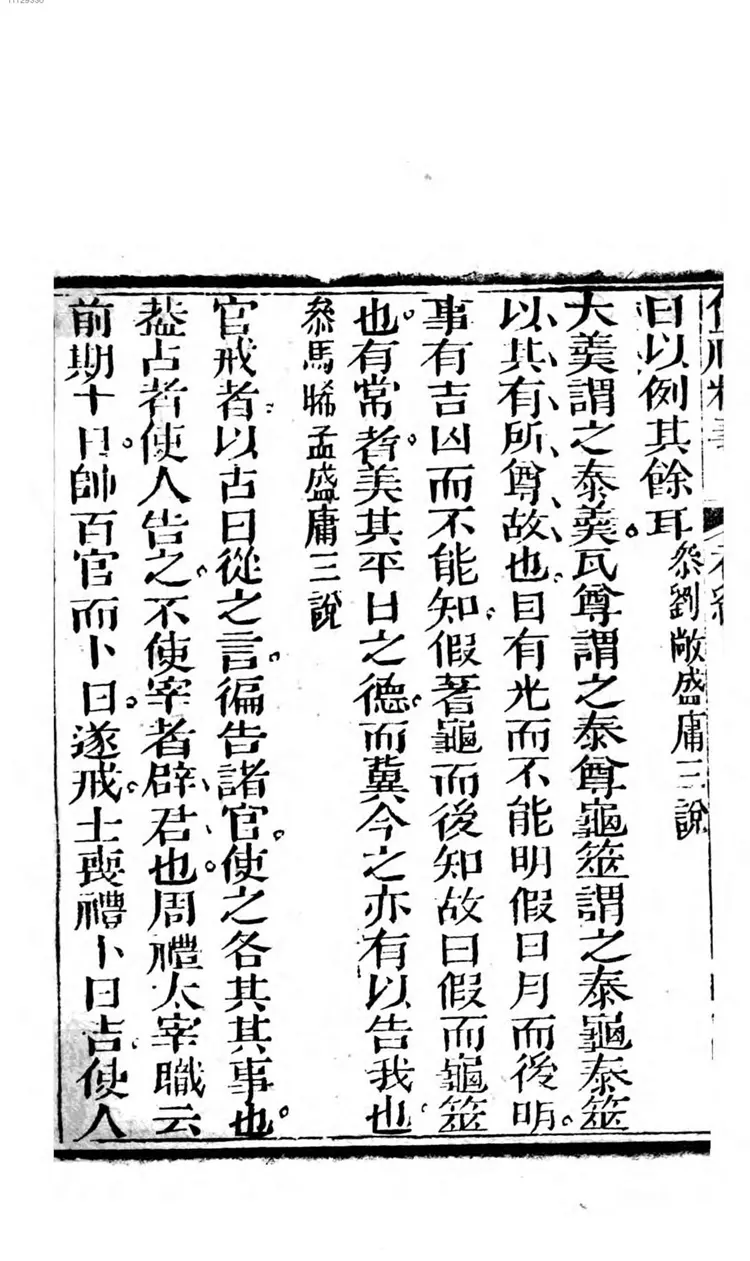 曰以例其餘耳。叅劉敞盛庸三說
大羹謂之泰羹瓦尊謂之泰尊龜筮謂之泰龜泰筮
以其有所尊故也目有光而不能明假日月而後明。
事有吉凶而不能知假蓍龜而後知故曰假而龜筮
也。有常者。美其平日之德。而冀今之亦有以告我也
叅馬晞孟盛庸三說
官戒者。以古曰從之言。徧告諸官。使之各其其事也。
葢占者使人告之。不使宰者辟君也。周禮太宰職云
前期十日。帥百官而卜日。遂戒。士喪禮卜日吉。使人